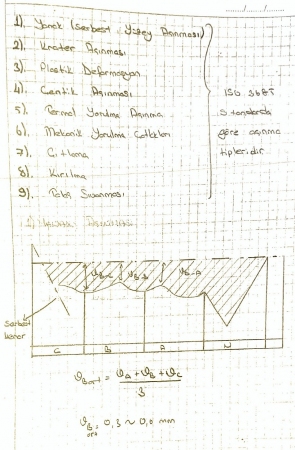 1). Yanak (Serbest Yüzey Aşınması)
2). Krater Aşınması
3). Plastik Deformasyon
4). Çentik Aşınması
5). Termal Yorulma Aşınma
6). Mekanik Yorulma Çatlakları
7). Çıtlama
8). Kırılma
9). Talaş Sıvanması
ISO 3685
Standarda
göre aşınma
tipleridir
1)
VB-C VB-B VB-A
Serbest
kenar
C B A N
VBort = VA + VB + VC
3
VB ort = 0,3 ~ 0,6 mm